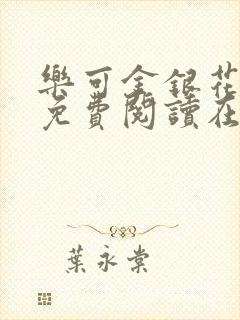 樂可金銀花
免費閱讀在
葉永棠